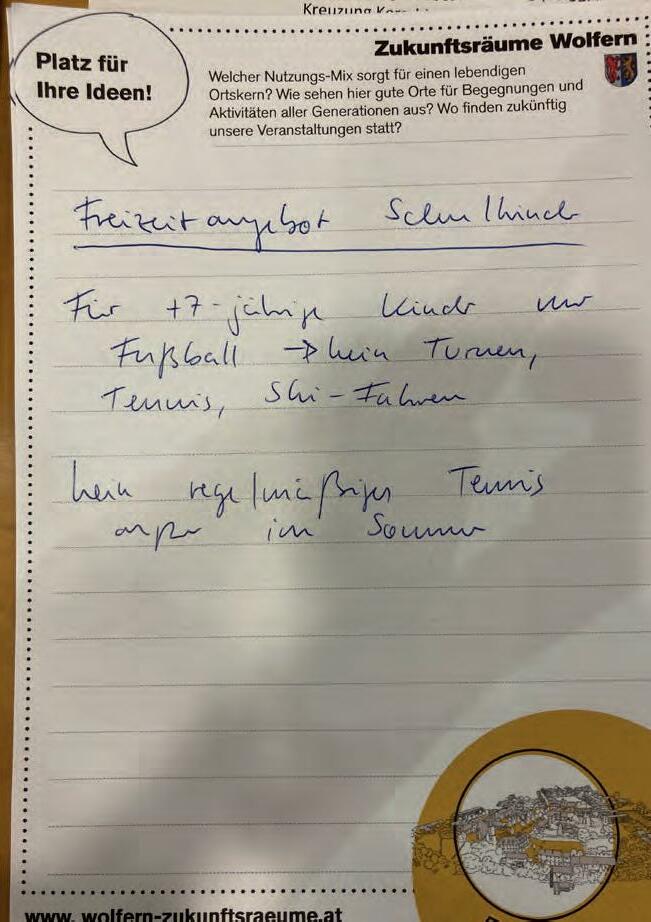 Kreuzung
Platz für
Ihre Ideen!
Zukunftsräume Wolfern
Welcher Nutzungs-Mix sorgt für einen lebendigen
Ortskern? Wie sehen hier gute Orte für Begegnungen und
Aktivitäten aller Generationen aus? Wo finden zukünftig
unsere Veranstaltungen statt?
Freizeitangebot Schulkinder
Für +7-jährige Kinder nur
Fußball → kein Turnen,
Tennis, Ski-Fahren
kein regelmäßiges Tennis
außer im Sommer
www.wolfern-zukunftsraeume.at